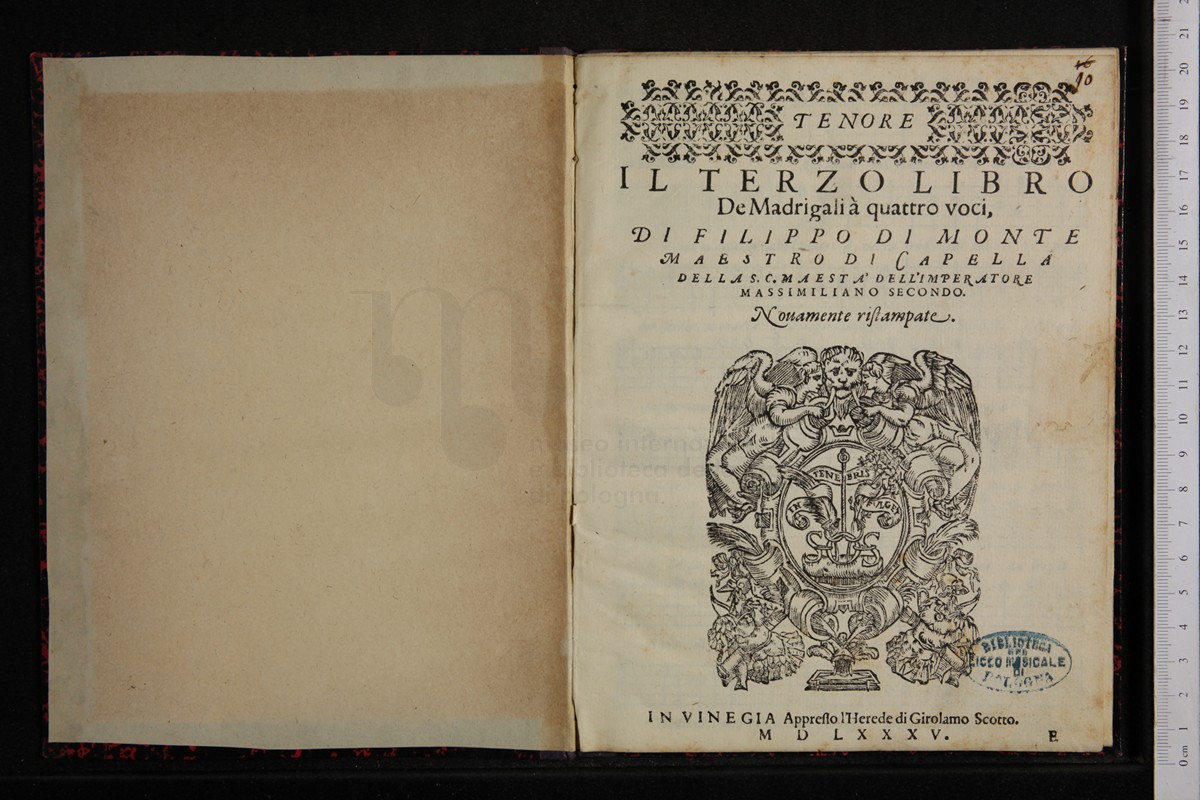 10
TENORE
IL TERZO LIBRO
De Madrigali à quattro voci,
DI FILIPPO DI MONTE
MAESTRO DI CAPELLA
DELLA S. C. MAESTA' DELL'IMPERATORE
MASSIMILIANO SECONDO.
Nouamente ristampate.
TENEBRIS
IN FVLGET
BIBLIOTECA
DEL
LICEO MUSICALE
DI
BOLOGNA
IN VINEGIA Appresso l'Herede di Girolamo Scotto.
M D LXXXV.
E
museo interna
e biblioteca de
di bologna
0 cm 1 2 3 4 5 6 7 8 9 10 11 12 13 14 15 16 17 18 19 20 21